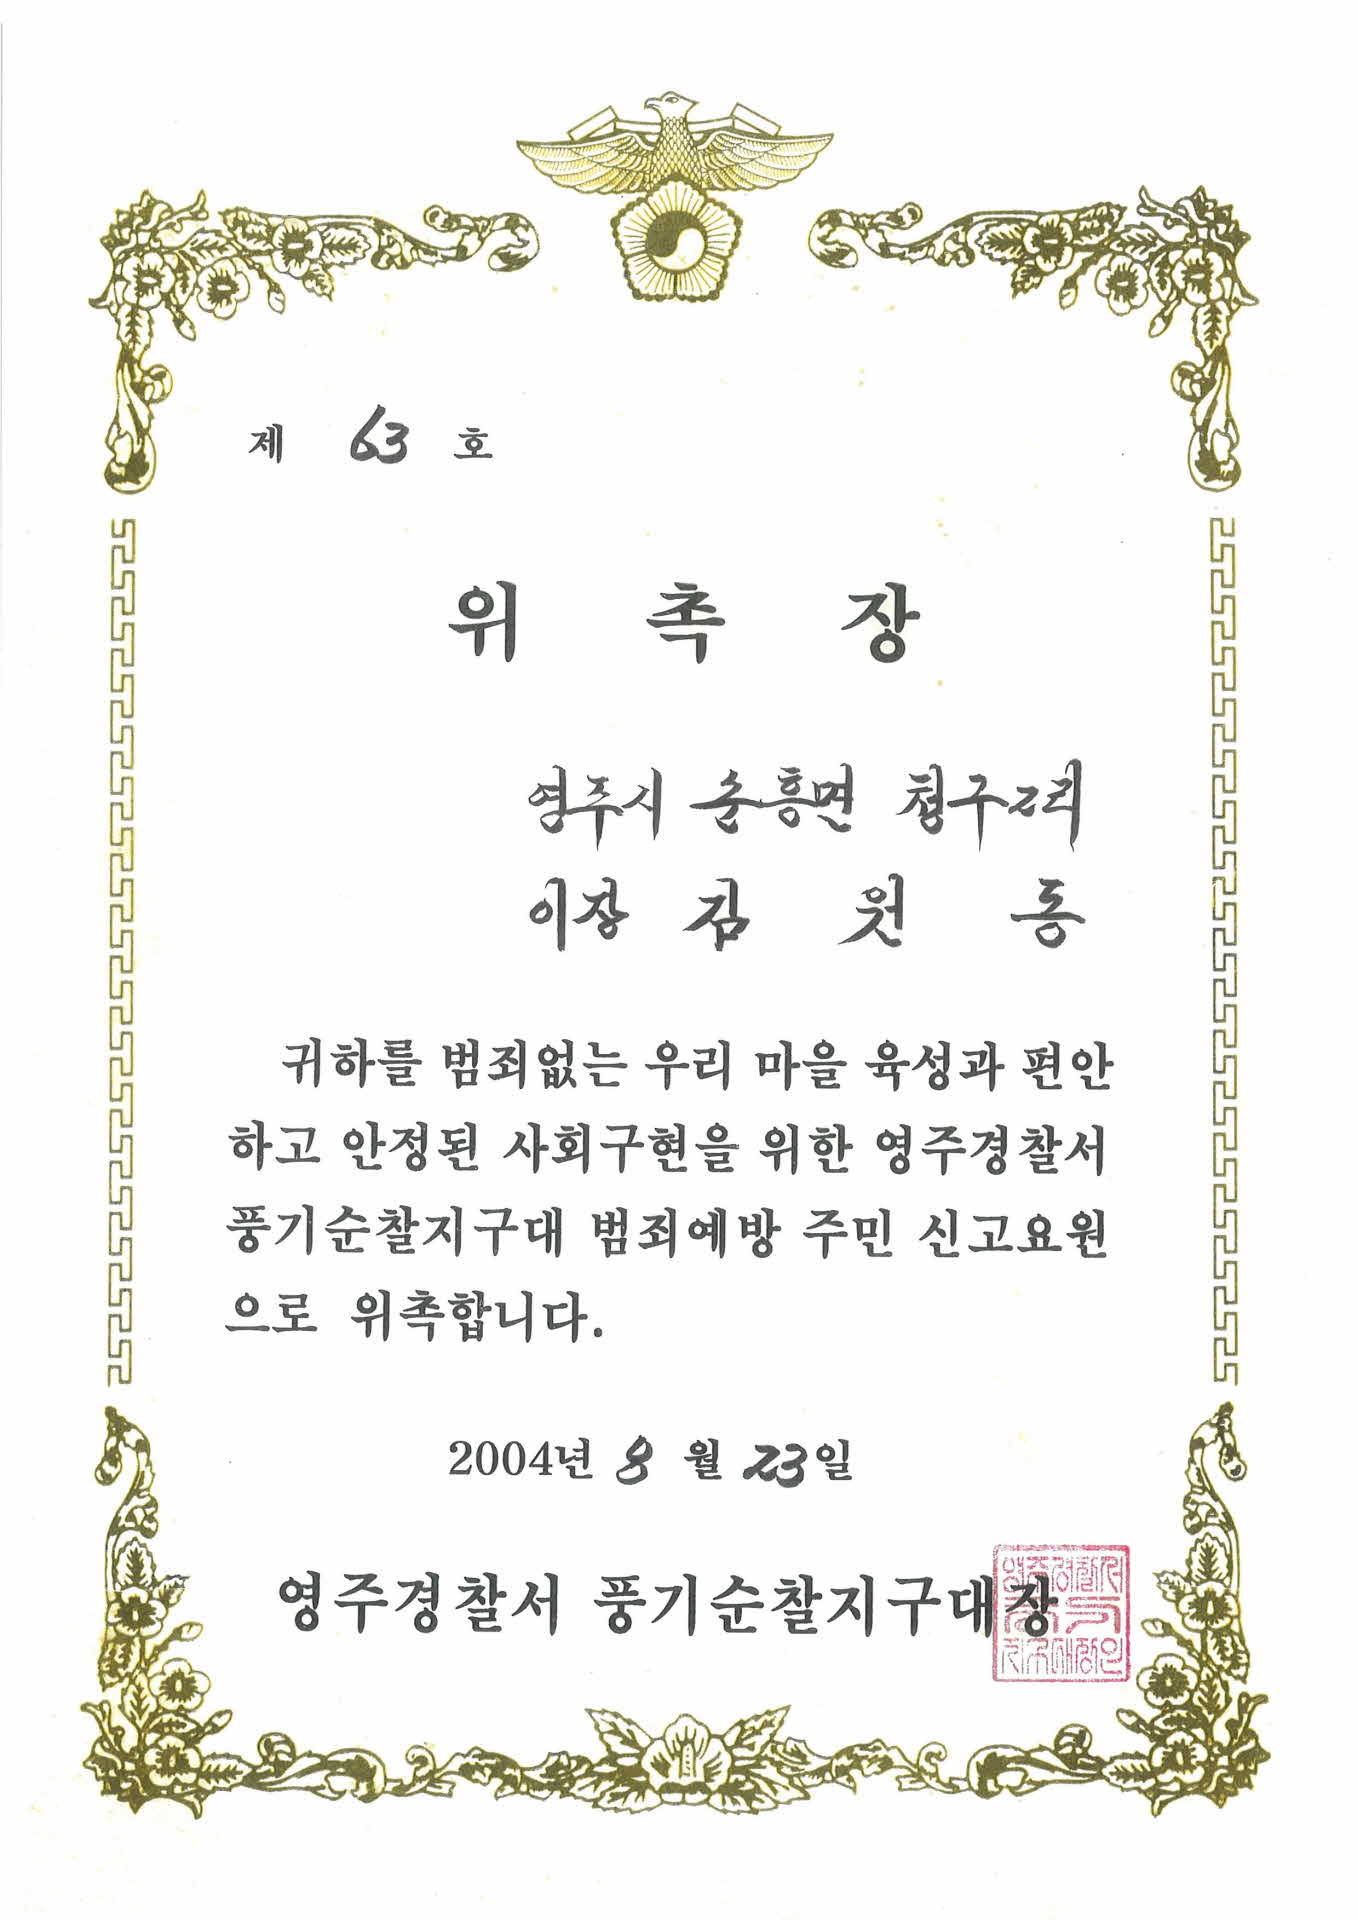 제 63 호
위 촉 장
영주시 순흥면 청구2리
이장 김 원 동
귀하를 범죄없는 우리 마을 육성과 편안
하고 안정된 사회구현을 위한 영주경찰서
풍기순찰지구대 범죄예방 주민 신고요원
으로 위촉합니다.
2004년 8 월 23일
영주경찰서 풍기순찰지구대장